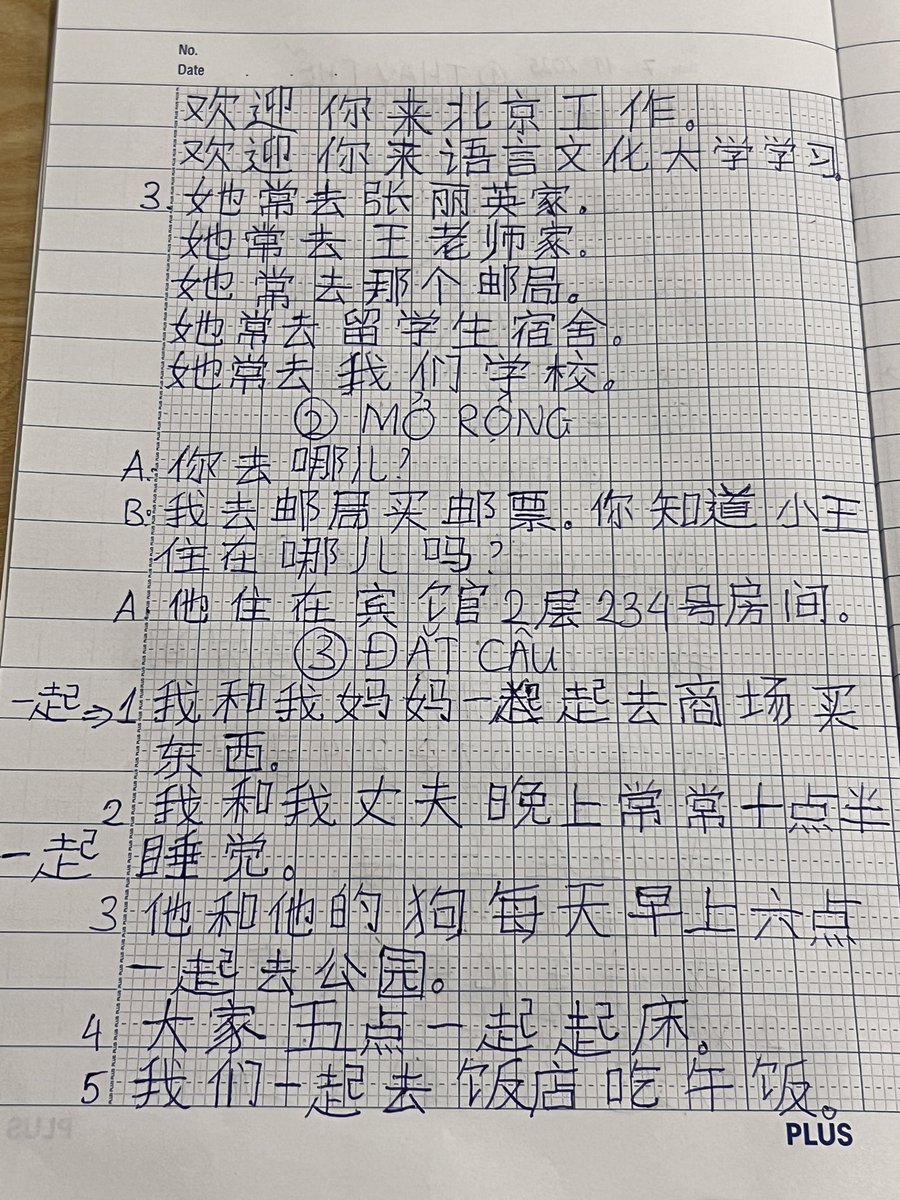 No.
Date
欢迎你来北京工作。
欢迎你来语言文化大学学习.
3. 她常去张丽英家.
她常去王老师家.
她常去那个邮局。
她常去留学生宿舍。
她常去我们学校。
② MỞ RỘNG
A: 你去哪儿?
B: 我去邮局买邮票。你知道小王
住在哪儿吗?
A 他住在宾馆2层234号房间。
③ ĐẶT CÂU
一起⇒1 我和我妈妈一起去商场买
东西。
2 我和我丈夫晚上常常十点半
一起 睡觉。
3 他和他的狗每天早上六点
一起去公园。
4 大家五点一起起床。
5 我们一起去饭店吃午饭。
PLUS